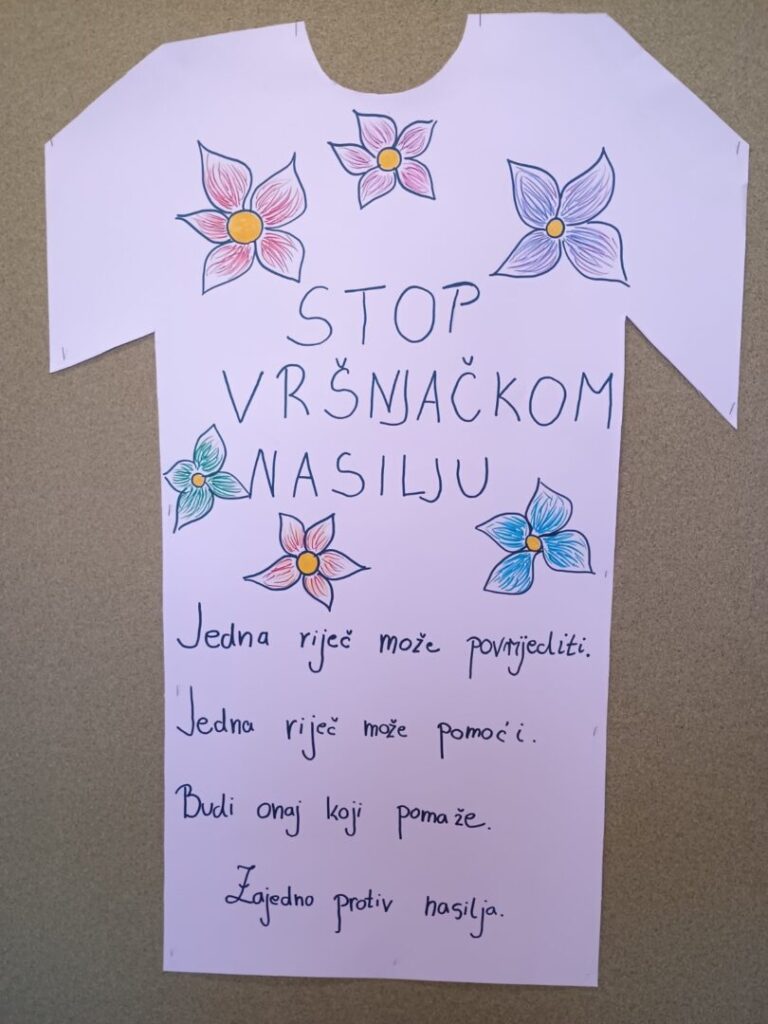 STOP
VRŠNJAČKOM
NASILJU
Jedna riječ može povrijediti.
Jedna riječ može pomoći.
Budi onaj koji pomaže.
Zajedno protiv nasilja.